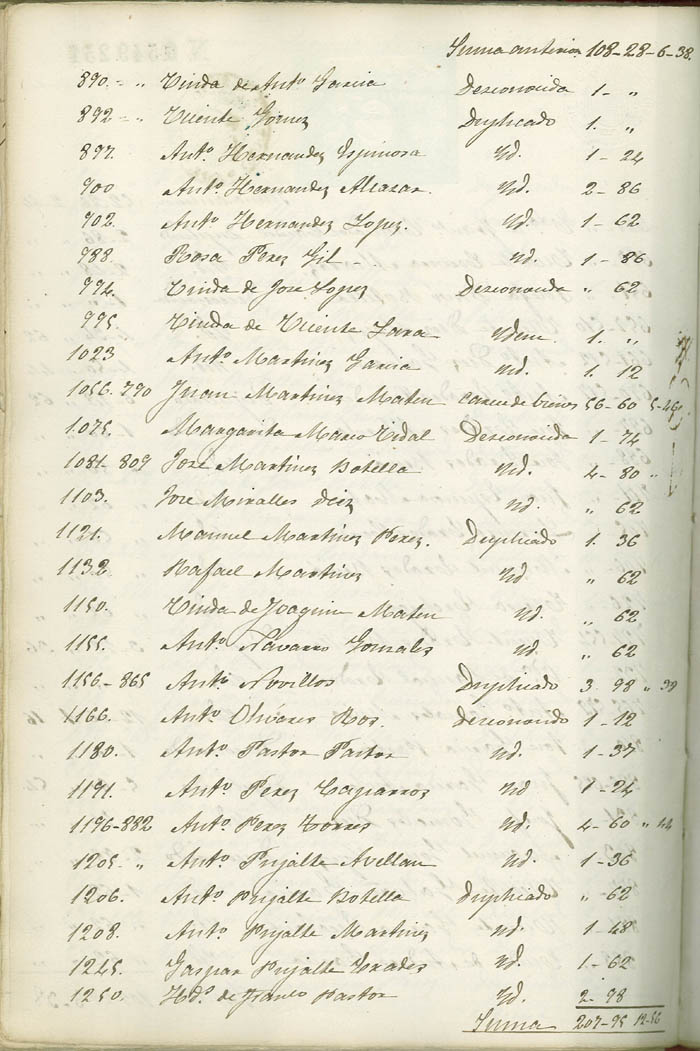 Suma anterior 108-28-6-38.
890.= „ Viuda de Antº Garcia Desconocida 1- „
892= „ Vicente Gomez Duplicado 1. „
897. Antº. Hernandez Espinosa Yd. 1-24
900 Antº. Hernandez Alcazar. Yd. 2-86
902. Antº Hernandez Lopez. Yd. 1-62
988. Rosa Perez Gil - . Yd. 1-86
994. Viuda de Jose Lopez Desconocida „ 62
995. Viuda de Vicente Lara Ydem. 1. „
1023 Antº. Martinez Garcia Yd. 1. 12
1056-790 Juan Martinez Mateu Carece de bienes 56-60
1075. Margarita Marco Vidal Desconocida 1-74
1081-809 José Martinez Botella Yd. 4-80 „
1103. Jose Miralles Yd. „ 62
1121. Manuel Martinez Perez. Duplicado 1. 36
1132 Rafael Martinez Yd „ 62
1150. Viuda de Joaquin Mateu Yd. „ 62
1155. Antº. Navarro Gonzales Yd. „ 62
1156-865 Antº. Novillos Duplicado 3 98 „ 39
1166. Antº Olivares Ros. Desconocido 1-12
1180. Antº. Pastor Pastor Yd. 1-37
1191. Antº. Perez Caparros Yd 1-24
1196-882 Antº Perez Torres Yd. 4-60 „ 44
1205- „ Antº. Pujalte Avellan Yd. 1-36
1206. Antº Pujalte Botella Duplicado „-62
1208. Antº. Pujalte Martinez Yd. 1-48
1245. Gaspar Pujalte Yd. 1-62
1250. Hdº. de Pastor Yd. 2-98
Suma 207-95 12-56